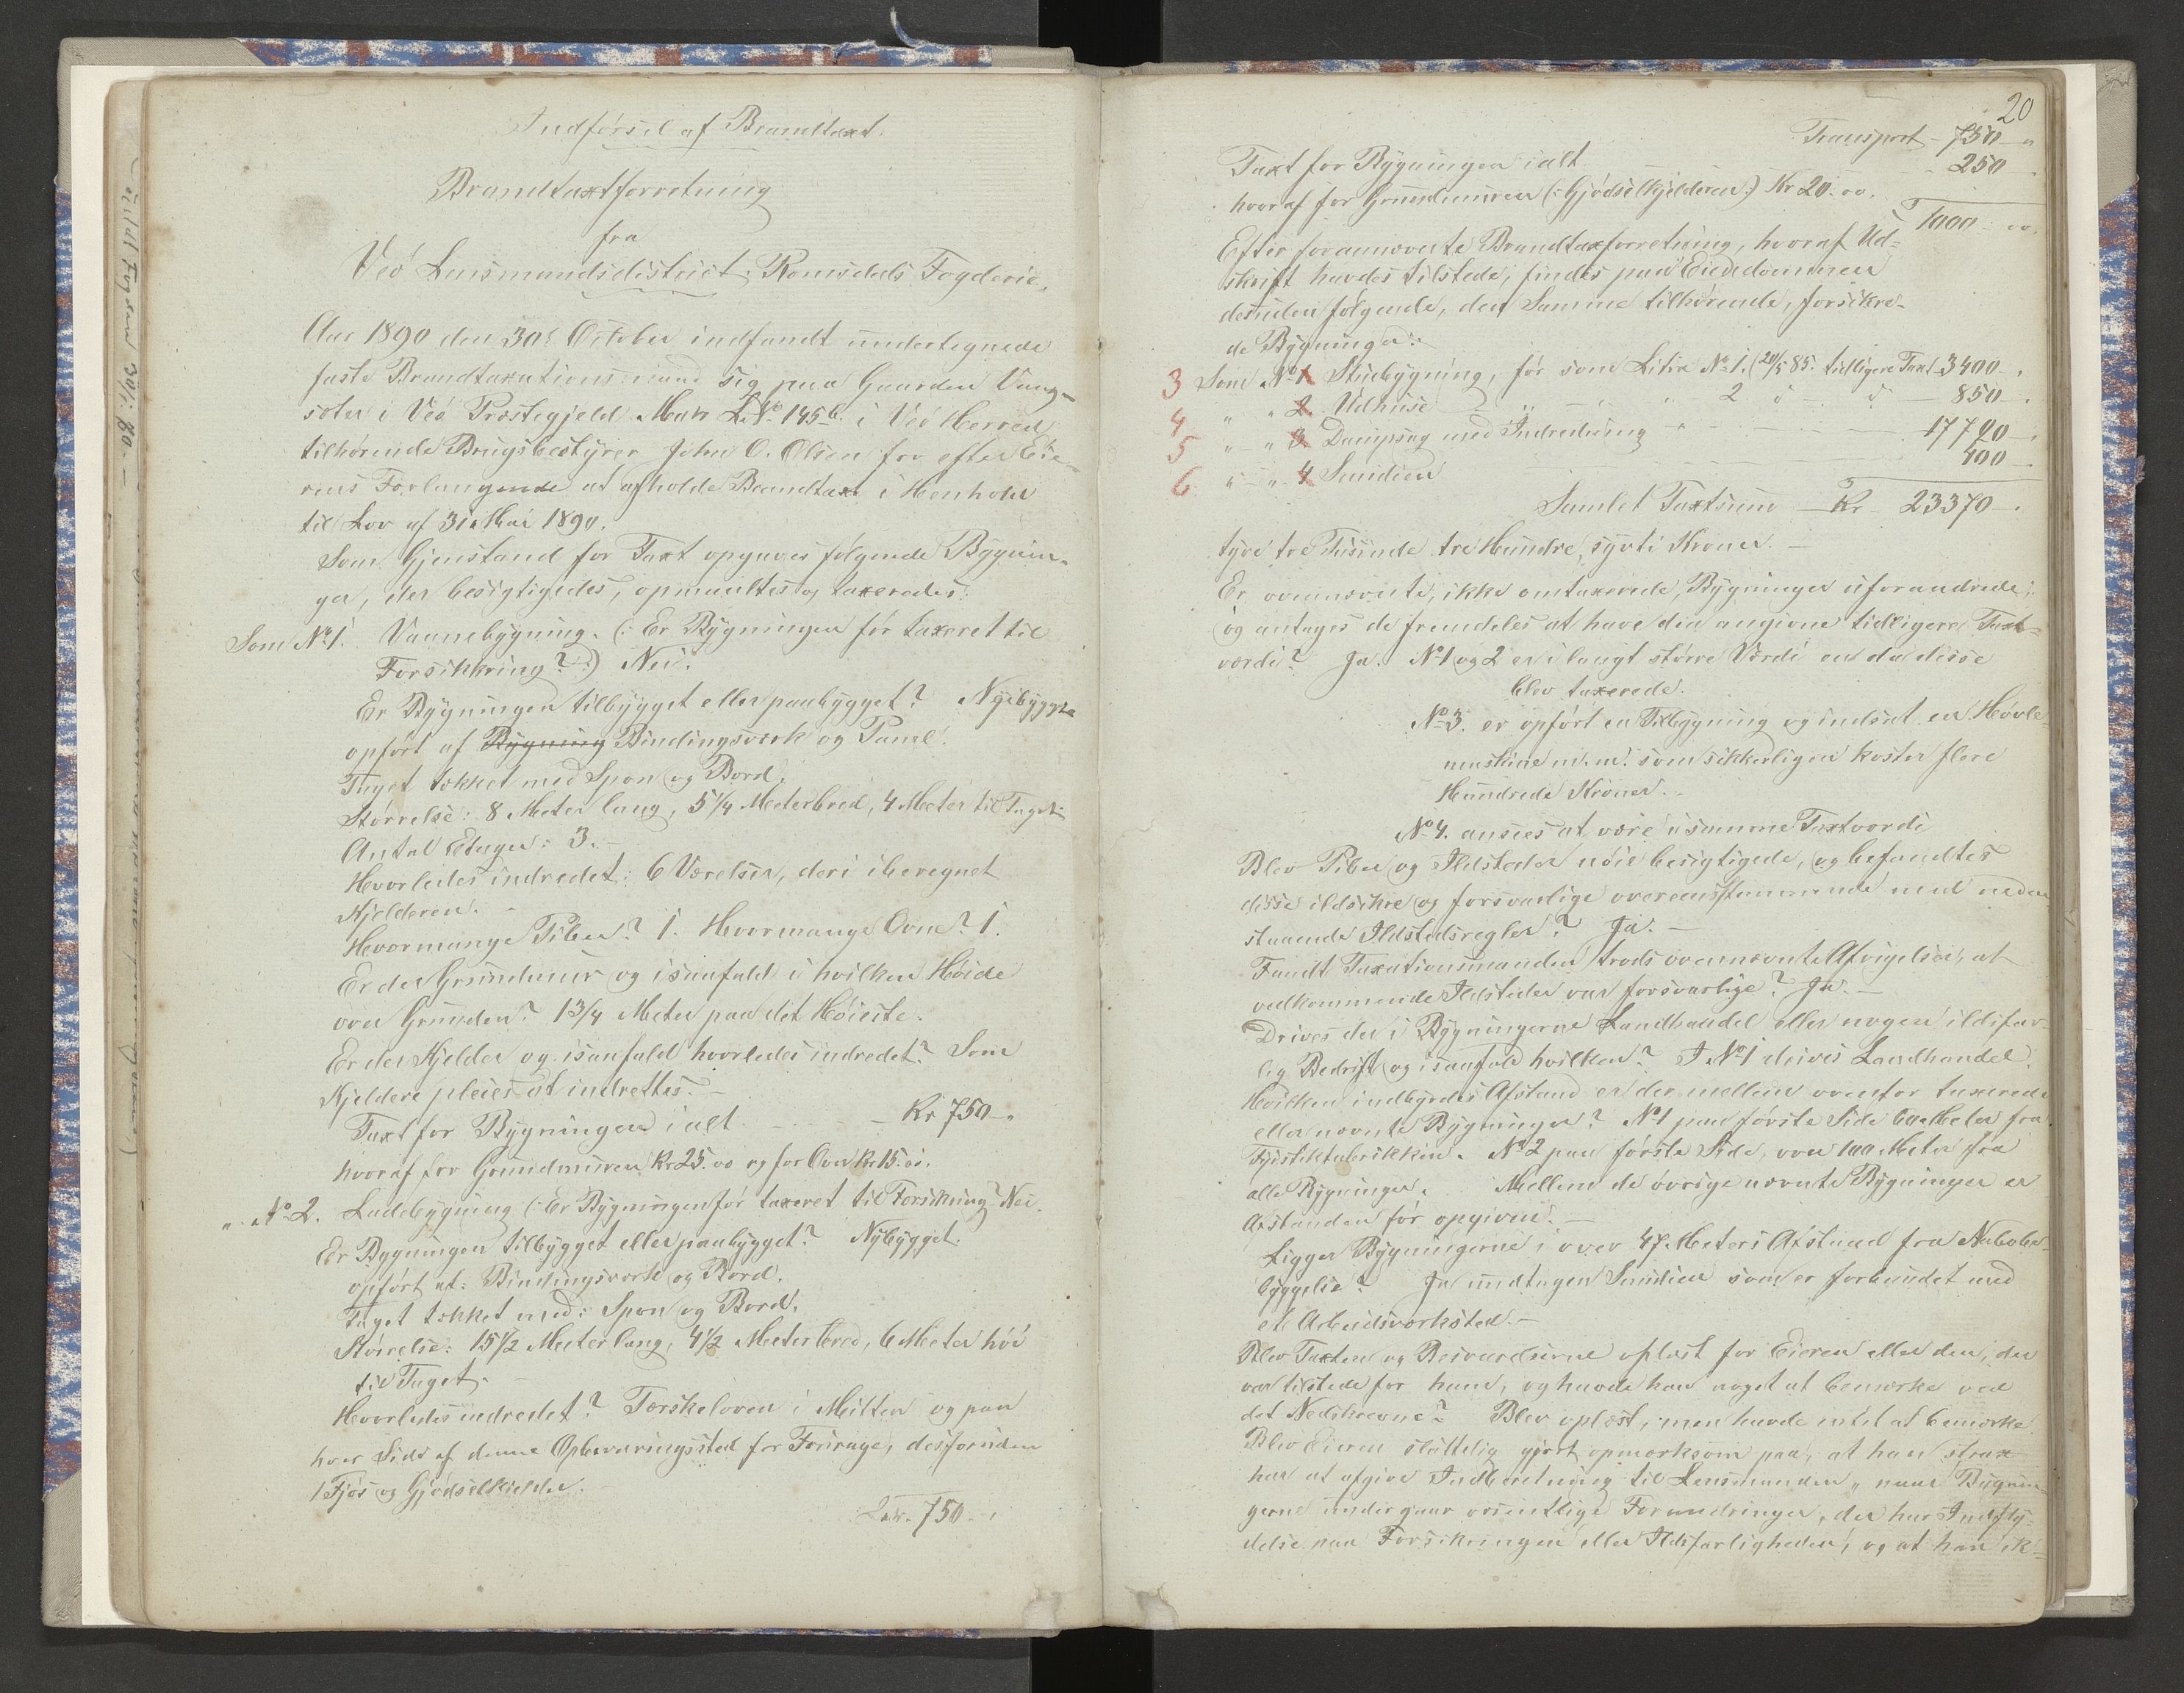 Indførsel af Brandtaxt.
Brandtaxtforretning
fra
Veø Lensmandsdistrict, Romsdals Fogderie.
Aar 1890 den 30te October indfandt undertegnede
faste Brandtaxationsmænd sig paa Gaarden Vaag-
sæter i Veø Præstegjeld Matr. L. No. 145 b. i Veø Herred
tilhørende Brugsbestyrer John O. Olsen for efter Eie-
rens Forlangende at afholde Brandtaxt i Henhold
til Lov af 31 Mai 1890.
Som Gjenstand for Taxt opgaves følgende Bygnin-
ger, der besigtigedes, opmaaltes og taxeredes:
Som No 1. Vaanebygning. (: Er Bygningen før taxeret til
Forsikkring? :) Nei.
Er Bygningen tilbygget eller paabygget? Nybygget
opført af Bygning Bindingsværk og Panel.
Taget tækket med Spon og Bord.
Størrelse: 8 Meter lang, 5 1/4 Meter bred, 4 Meter til Taget.
Antal Etager: 3. -
Hvorledes indredet: 6 Værelser, deri iberegnet
Kjelderen. -
Hvormange Piber? 1. Hvormange Ovne? 1.
Er der Grundmur og isaafald i hvilken Høide
over Grunden? 1 3/4 Meter paa det Høieste.
Er der Kjelder og isaafald hvorledes indredet? Som
Kjeldere pleies at indrettes. -
Taxt for Bygningen ialt - Kr 750 -
hvoraf for Grundmuren Kr 25. 00 og for Ovn Kr 15. 00.
" No 2. Ladebygning (: Er Bygningen før taxeret til Forsikring? Nei.
Er Bygningen tilbygget eller paabygget? Nybygget.
opført af: Bindingsværk og Bord.
Taget tækket med: Spon og Bord.
Størrelse: 15 1/2 Meter lang, 4 1/2 Meter bred, 6 Meter høi
til Taget. -
Hvorledes indredet? Tærskeloven i Mitten og paa
hver Side af denne Opbevaringssted for Fourage, desforuden
1 Fjøs og Gjødselkjelder.
Lat. 750 -
20
Transport - 750 - "
Taxt for Bygningen ialt - 250 -
hvoraf for Grundmuren (: Gjødselkjelderen :) Kr 20. 00.
1000 - 00.
Efter forannævnte Brandtaxforretning, hvoraf Ud-
skrift havdes tilstede, findes paa Eiendommen
desuden følgende, den Samme tilhørende, forsikre-
de Bygninger:
3 Som No 1 Stuebygning, før som Litra No 1. (20/5 85. tidligere Taxt 3400 - .
4 " - " 2 Udhuse - " - " - " 2 d - d - 850 - .
5 " - " 3 Dampsag med Indredning - " - 17720 - .
6 " - " 4 Smidien - 400 -
Samlet Taxtsum - Kr - 23370 - .
tyve tre Tusinde tre Hundre, sytti Kroner. -
Er ovennævnte, ikke omtaxerede, Bygninger uforandrede;
og antages de fremdeles at have den angivne tidligere Taxt-
værdi? Ja. No 1 og 2 er i langt større Værdi en da disse
blev taxerede.
No 3. er opført en Tilbygning og indsat en Høvle-
maskine m. m. som sikkerligen koster flere
Hundrede Kroner. -
No 4. ansees at være i samme Taxtværdi
Blev Piber og Ildsteder nøie besigtigede, og befandtes
disse ildsikre og forsvarlige overensstemmende med neden-
staaende Ildstedsregler? Ja. -
Fandt Taxationsmanden trods ovennævnte Afvigelser, at
vedkommende Ildsteder var forsvarlige? Ja. -
Drives der i Bygningerne Landhandel eller nogen ildsfar-
lig Bedrift og isaafald hvilken? I No 1 drives Landhandel.
Hvilken indbyrdes Afstand er der mellem ovenfor taxerede
eller nævnte Bygninger? No 1 paa første Side 60 Meter fra
No 2 paa første Side, over 100 Meter fra
alle Bygninger. Mellem de øvrige nævnte Bygninger er
Afstanden før opgiven. -
Ligger Bygningerne i over 47 Meters Afstand fra Nabobe-
byggelse? Ja undtagen Smidien som er forbundet med
et Arbeidsværksted. -
Blev Taxten og Besvarelserne oplæst for Eieren eller den, der
var tilstede for ham, og havde han noget at bemærke ved
det Nedskrevne? Blev oplæst, men havde intet at bemærke.
Blev Eieren sluttelig gjort opmærksom paa, at han strax
har at afgive Indberetning til Lensmanden, naar Bygnin-
gerne undergaar væsentlige Forandringer, der har Indfly-
delse paa Forsikringen eller Ildsfarligheden, og at han ik-